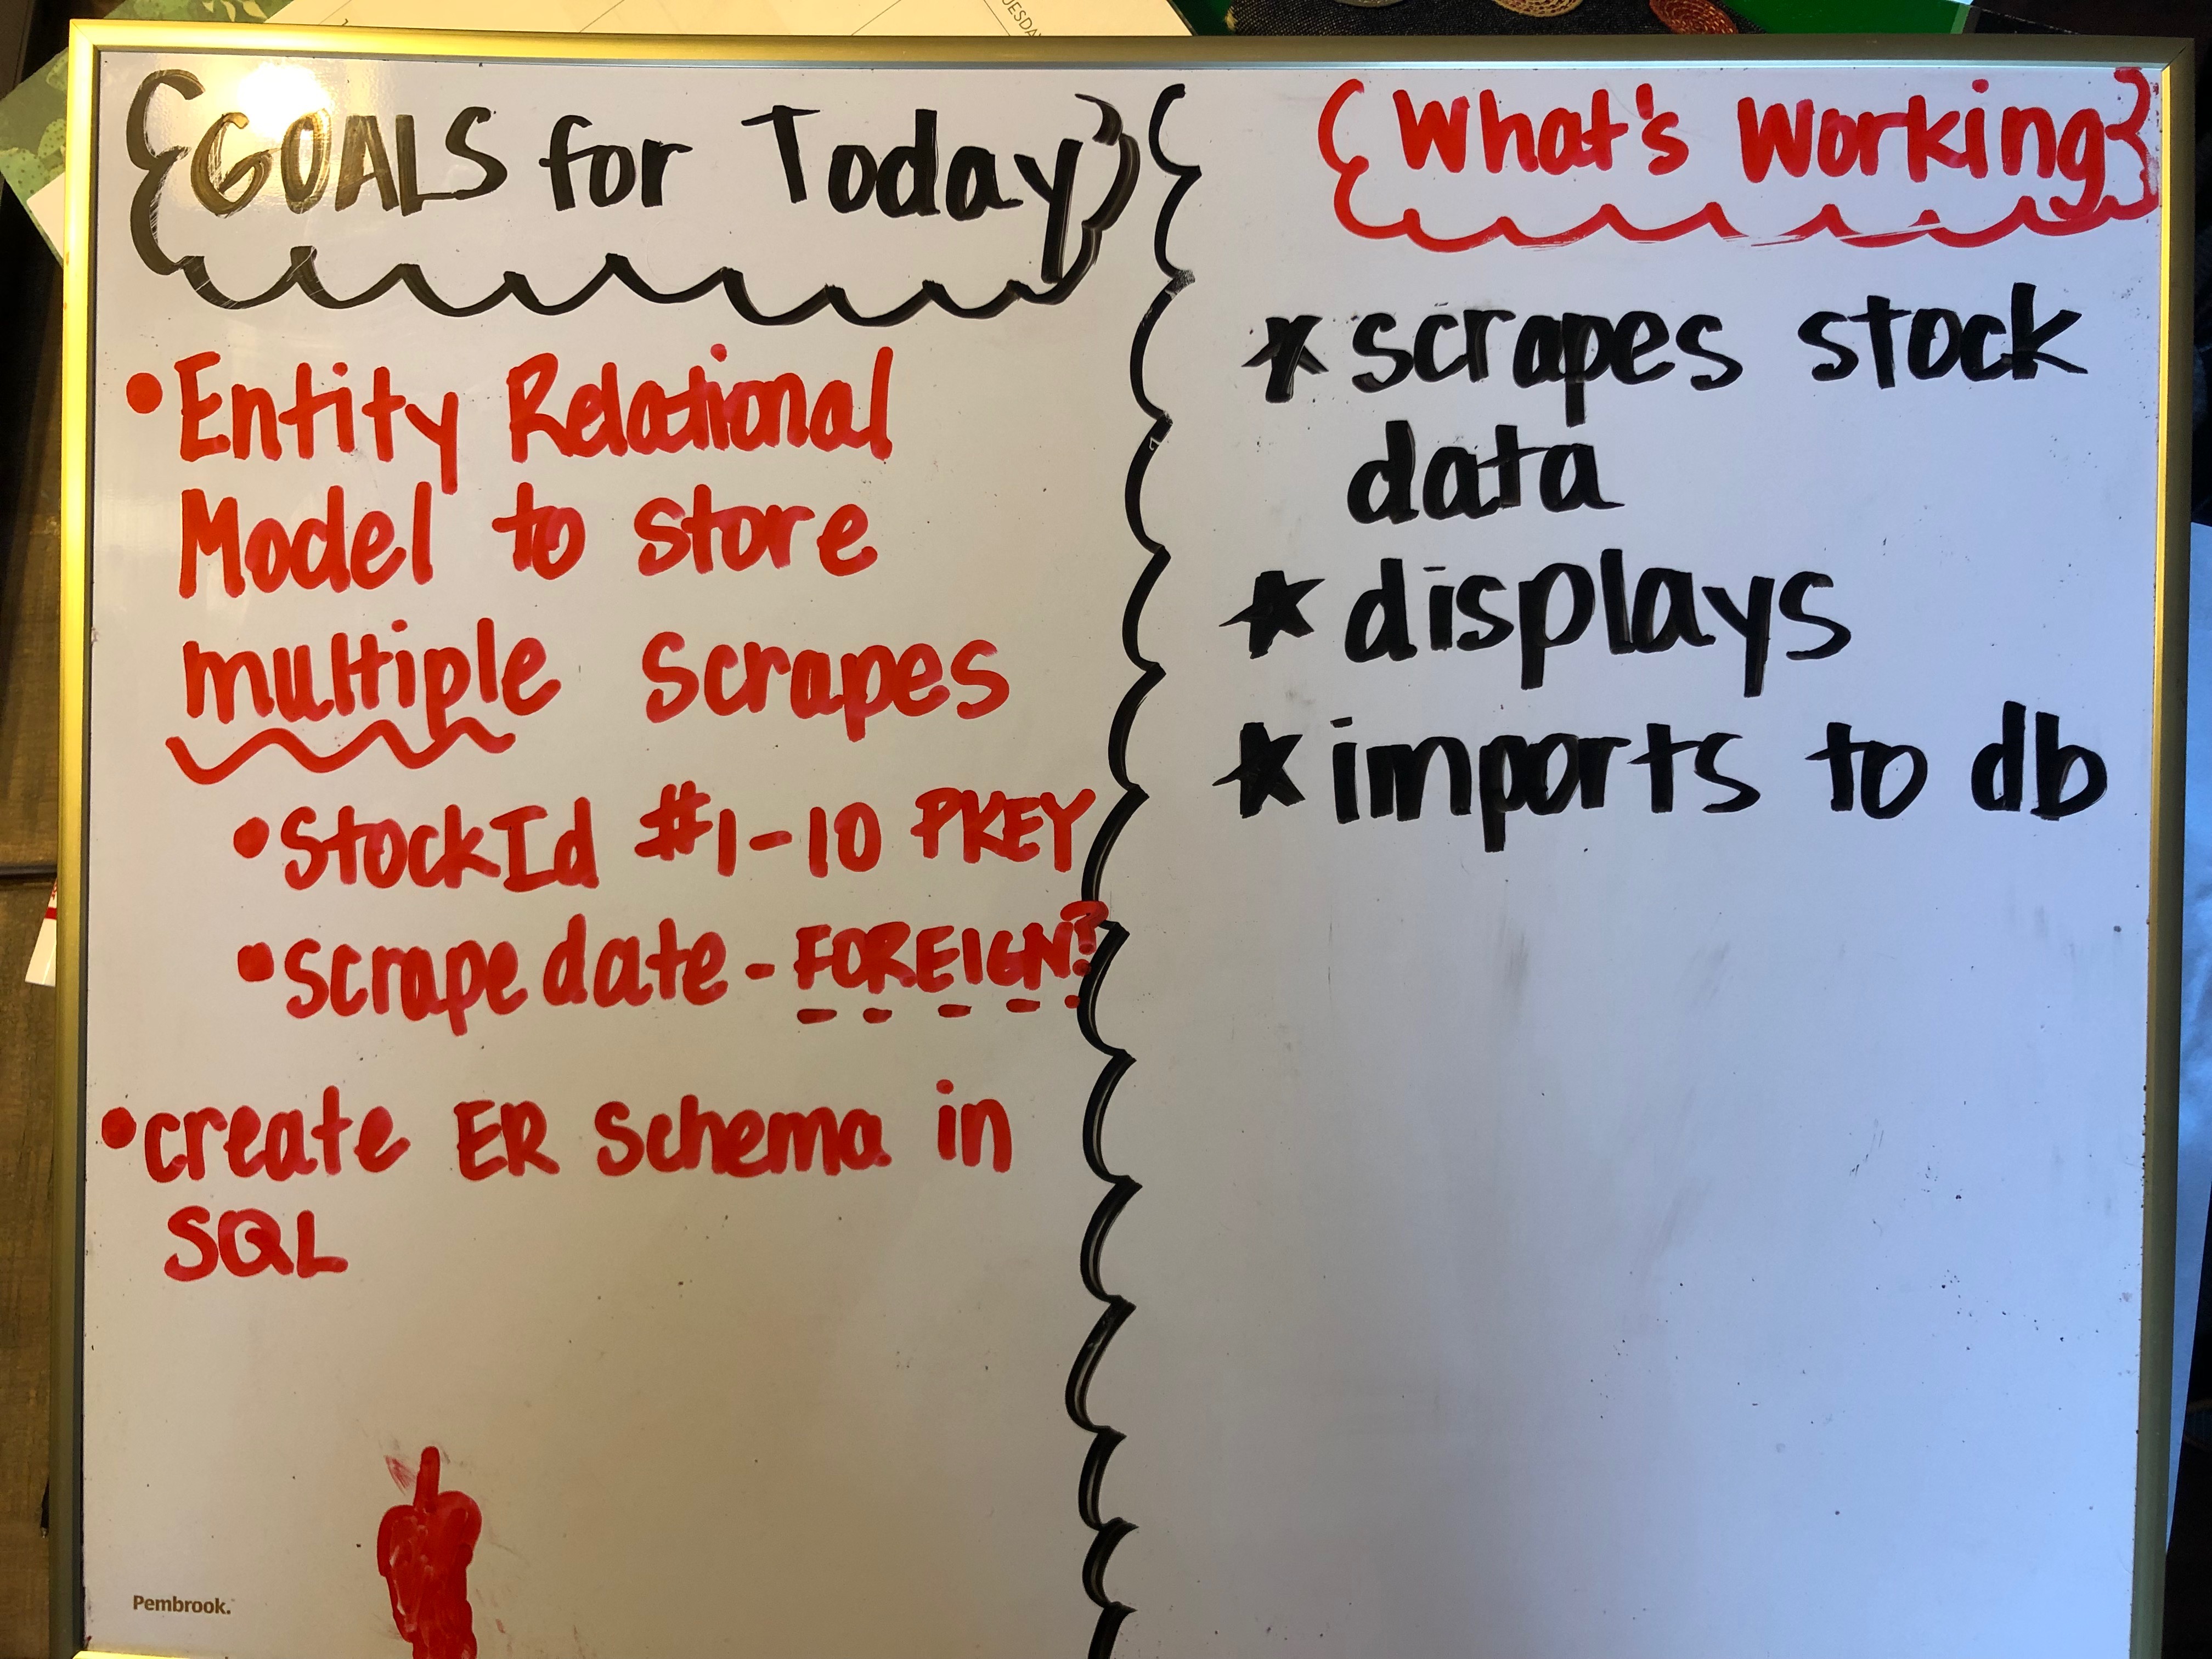 {GOALS for Today}
• Entity Relational
Model to store
multiple scrapes
• StockId #1-10 PKEY
• scrape date - FOREIGN?
• create ER schema in
SQL
{What's Working}
* scrapes stock
data
★ displays
★ imports to db
Pembrook.